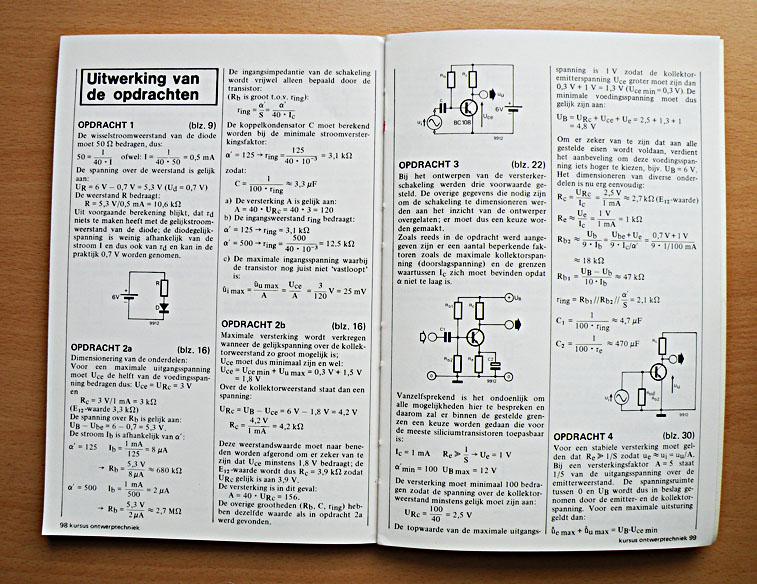 Uitwerking van
de opdrachten
OPDRACHT 1 (blz. 9)
De wisselstroomweerstand van de diode
moet 50 Ω bedragen, dus:
50 = 1 / 40 · I ofwel: I = 1 / 40 · 50 = 0,5 mA
De spanning over de weerstand is gelijk
aan:
UR = 6 V – 0,7 V = 5,3 V (Ud = 0,7 V)
De weerstand R bedraagt:
R = 5,3 V/0,5 mA = 10,6 kΩ
Uit voorgaande berekening blijkt, dat rd
niets te maken heeft met de gelijkstroom-
weerstand van de diode; de diodegelijk-
spanning is weinig afhankelijk van de
stroom I en dus ook van rd en kan in de
praktijk 0,7 V worden genomen.
6V
R
D
9912
OPDRACHT 2a (blz. 16)
Dimensionering van de onderdelen:
Voor een maximale uitgangsspanning
moet Uce de helft van de voedingsspan-
ning bedragen dus: Uce = URc = 3 V
en
Rc = 3 V/1 mA = 3 kΩ
(E12-waarde 3,3 kΩ)
De spanning over Rb is gelijk aan:
UB – Ube = 6 – 0,7 = 5,3 V.
De stroom Ib is afhankelijk van α':
α' = 125 Ib = 1 mA / 125 = 8 μA
→ Rb = 5,3 V / 8 μA ≈ 680 kΩ
α' = 500 Ib = 1 mA / 500 = 2 μA
→ Rb = 5,3 V / 2 μA ≈ 2,7 MΩ
98 kursus ontwerptechniek
De ingangsimpedantie van de schakeling
wordt vrijwel alleen bepaald door de
transistor:
(Rb is groot t.o.v. ring):
ring = α' / S = α' / 40 · Ic
De koppelkondensator C moet berekend
worden bij de minimale stroomverster-
kingsfaktor:
α' = 125 → ring = 125 / 40 · 10⁻³ = 3,1 kΩ
zodat:
C = 1 / 100 · ring ≈ 3,3 μF
a) De versterking A is gelijk aan:
A = 40 · URc = 40 · 3 = 120
b) De ingangsweerstand ring bedraagt:
α' = 125 → ring = 3,1 kΩ
α' = 500 → ring = 500 / 40 · 10⁻³ = 12.5 kΩ
c) De maximale ingangsspanning waarbij
de transistor nog juist niet 'vastloopt'
is:
ûi max = ûu max / A = Uce / A = 3 / 120 V = 25 mV
OPDRACHT 2b (blz. 16)
Maximale versterking wordt verkregen
wanneer de gelijkspanning over de kollek-
torweerstand zo groot mogelijk is;
Uce moet dus minimaal zijn en wel:
Uce = Uce min + Uu max = 0,3 V + 1,5 V
= 1,8 V
Over de kollektorweerstand staat dan een
spanning:
URc = UB – Uce = 6 V – 1,8 V = 4,2 V
Rc = 4,2 V / 1 mA = 4,2 kΩ
Deze weerstandswaarde moet naar bene-
den worden afgerond om er zeker van te
zijn dat Uce minstens 1,8 V bedraagt; de
E12-waarde wordt dus Rc = 3,9 kΩ zodat
URc gelijk is aan 3,9 V.
De versterking is in dit geval:
A = 40 · URc = 156.
De overige grootheden (Rb, C, ring) heb-
ben dezelfde waarde als in opdracht 2a
werd gevonden.
Rb
Rc
C
uu
ui
BC 108
Uce
6V
9912
OPDRACHT 3 (blz. 22)
Bij het ontwerpen van de versterker-
schakeling werden drie voorwaarde ge-
steld. De overige gegevens die nodig zijn
om de schakeling te dimensioneren wer-
den aan het inzicht van de ontwerper
overgelaten; er moet dus een keuze wor-
den gemaakt.
Zoals reeds in de opdracht werd aange-
geven zijn er een aantal beperkende fak-
toren zoals de maximale kollektorspan-
ning (doorslagspanning) en de grenzen
waartussen Ic zich moet bevinden opdat
α niet te laag is.
UB
Rb1
Rc
C1
Rb2
Re
C2
9912
Vanzelfsprekend is het ondoenlijk om
alle mogelijkheden hier te bespreken en
daarom zal er binnen de gestelde gren-
zen een keuze worden gedaan die voor
de meeste siliciumtransistoren toepasbaar
is:
Ic = 1 mA Re ≫ 1 / S → Ue = 1 V
α'min = 100 UB max = 12 V
De versterking moet minimaal 100 bedra-
gen zodat de spanning over de kollektor-
weerstand minstens gelijk moet zijn aan:
URc = 100 / 40 = 2,5 V
De topwaarde van de maximale uitgangs-
spanning is 1 V zodat de kollektor-
emitterspanning Uce groter moet zijn dan
0,3 V + 1 V = 1,3 V (Uce min = 0,3 V). De
minimale voedingsspanning moet dus
gelijk zijn aan:
UB = URc + Uce + Ue = 2,5 + 1,3 + 1
= 4,8 V
Om er zeker van te zijn dat aan alle
gestelde eisen wordt voldaan, verdient
het aanbeveling om deze voedingsspan-
ning iets hoger te kiezen, bijv. UB = 6 V.
Het dimensioneren van de diverse onder-
delen is nu erg eenvoudig:
Rc = URc / Ic = 2,5 V / 1 mA ≈ 2,7 kΩ (E12-waarde)
Re ≈ Ue / Ic = 1 V / 1 mA = 1 kΩ
Rb2 ≈ Ub / 9 · Ib = Ube + Ue / 9 · Ic/α' = 0,7 V + 1 V / 9 · 1/100 mA
≈ 18 kΩ
Rb1 = UB – Ub / 10 · Ib ≈ 47 kΩ
ring = Rb1 // Rb2 // α' / S = 2,1 kΩ
C1 = 1 / 100 · ring ≈ 4,7 μF
C2 = 1 / 100 · re ≈ 470 μF
Rc
ui
Re
uu
9912
OPDRACHT 4 (blz. 30)
Voor een stabiele versterking moet gel-
den dat Re ≫ 1/S zodat ue ≈ ui = uu/A.
Bij een versterkingsfaktor A = 5 staat
1/5 van de uitgangsspanning over de
emitterweerstand. De spanningsruimte
tussen 0 en UB wordt dus in beslag ge-
nomen door de emitter- en de kollektor-
spanning. Voor een maximale uitsturing
geldt dan:
ûe max + ûu max = UB-Uce min
kursus ontwerptechniek 99